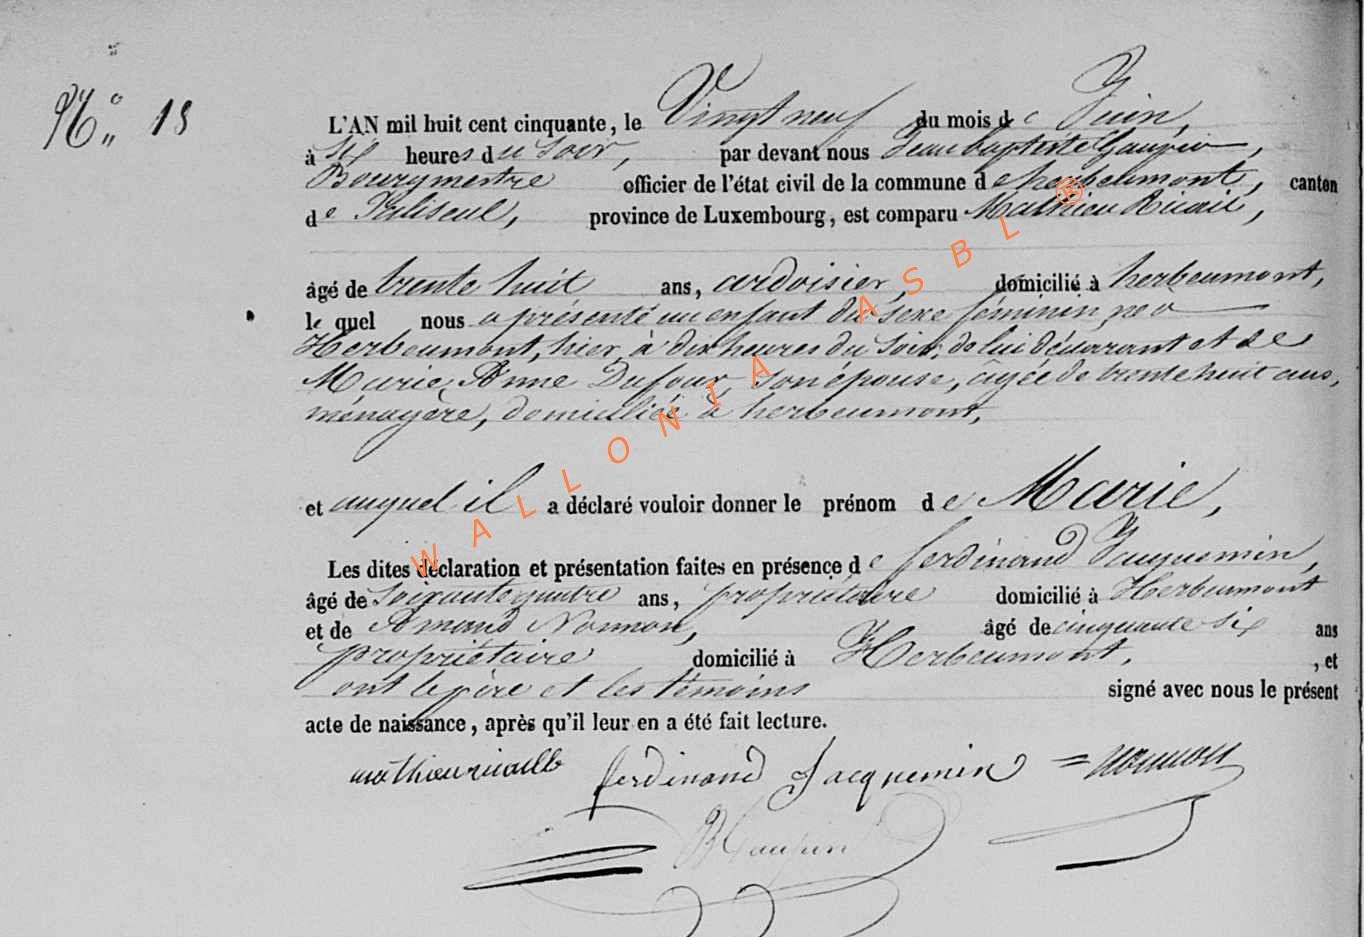 N° 18
L'AN mil huit cent cinquante, le Vingt neuf du mois de Juin,
à six heures du Soir, par devant nous Jean baptiste
Bourgmestre officier de l'état civil de la commune de herbeumont, canton
de Paliseul, province de Luxembourg, est comparu Mathieu
âgé de trente huit ans, ardoisier, domicilié à herbeumont,
le quel nous a présenté un enfant du Sexe féminin, né à
Herbeumont, hier, à dix heures du Soir, de lui déclarant et de
Marie Anne Dufour, son épouse, âgée de trente huit ans,
ménagère, domiciliée à herbeumont,
et auquel il a déclaré vouloir donner le prénom de Marie,
Les dites déclaration et présentation faites en présence de ferdinand Jacquemin,
âgé de soixante quatre ans, propriétaire domicilié à Herbeumont
et de Armand Normon, âgé de cinquante six ans
propriétaire domicilié à Herbeumont, , et
ont le père et les témoins signé avec nous le présent
acte de naissance, après qu'il leur en a été fait lecture.
ferdinand Jacquemin
WALLONIA ASBL ®